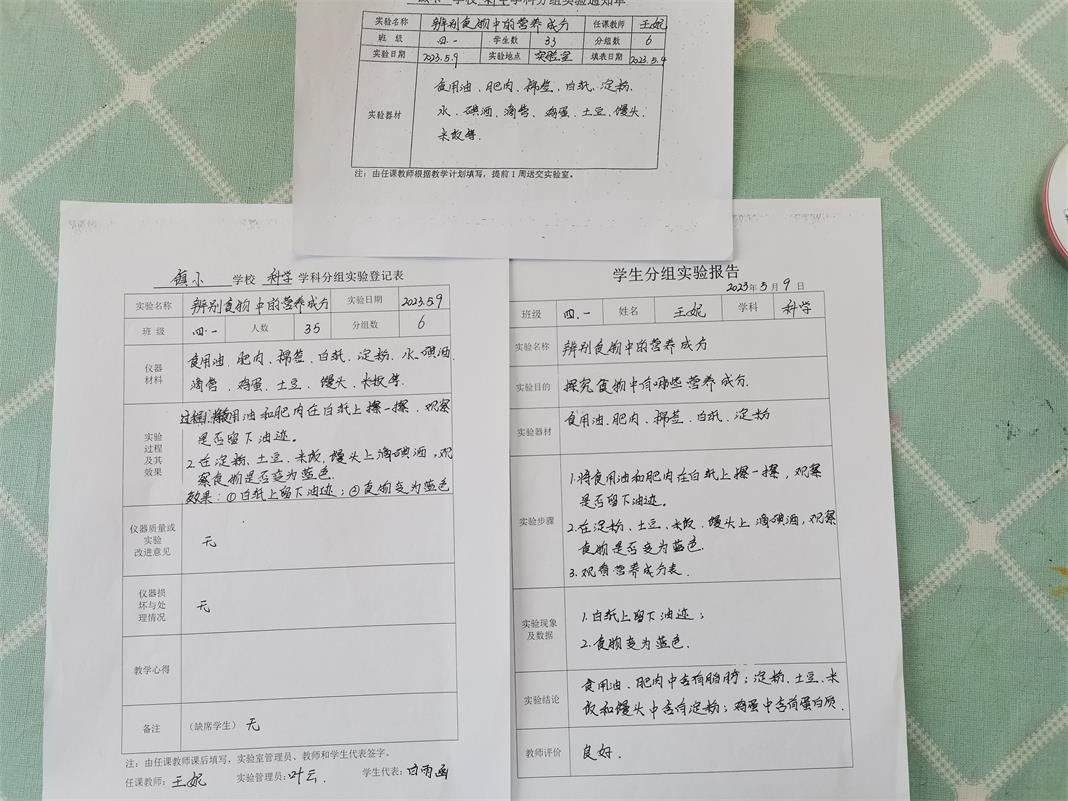 学校 科学学科分组实验通知单
实验名称 辨别食物中的营养成分 任课教师 王妮
班 级 四.一 学生数 35 分组数 6
实验日期 2023.5.9 实验地点 实验室 填表日期 2023.5.4
实验器材
食用油、肥肉、棉签、白纸、淀粉、
水、碘酒、滴管、鸡蛋、土豆、馒头、
米饭等.
注：由任课教师根据教学计划填写，提前1周送交实验室。
镇小 学校 科学 学科分组实验登记表
实验名称 辨别食物中的营养成分 实验日期 2023.5.9
班 级 四.一 人数 35 分组数 6
仪器
材料
食用油、肥肉、棉签、白纸、淀粉、水、碘酒、
滴管、鸡蛋、土豆、馒头、米饭等.
实验
过程
及其
效果
食用油和肥肉在白纸上擦一擦，观察
是否留下油迹。
2.在淀粉、土豆、米饭、馒头上滴碘酒，观
察食物是否变为蓝色.
效果：①白纸上留下油迹；②食物变为蓝色
仪器质量或
实验
改进意见
无
仪器损
坏与处
理情况
无
教学心得
备注 (缺席学生) 无
注：由任课教师课后填写，实验室管理员、教师和学生代表签字。
任课教师：王妮 实验管理员：叶云. 学生代表：白雨函
学生分组实验报告
2023年5月9日
班级 四.一 姓名 王妮 学科 科学
实验名称 辨别食物中的营养成分
实验目的 探究食物中有哪些营养成分.
实验器材 食用油、肥肉、棉签、白纸、淀粉
实验步骤
1.将食用油和肥肉在白纸上擦一擦，观察
是否留下油迹。
2.在淀粉、土豆、米饭、馒头上滴碘酒，观察
食物是否变为蓝色.
3.观看营养成分表.
实验现象
及数据
1.白纸上留下油迹；
2.食物变为蓝色.
实验结论
食用油、肥肉中含有脂肪；淀粉、土豆、米
饭和馒头中含有淀粉；鸡蛋中含有蛋白质.
教师评价 良好.